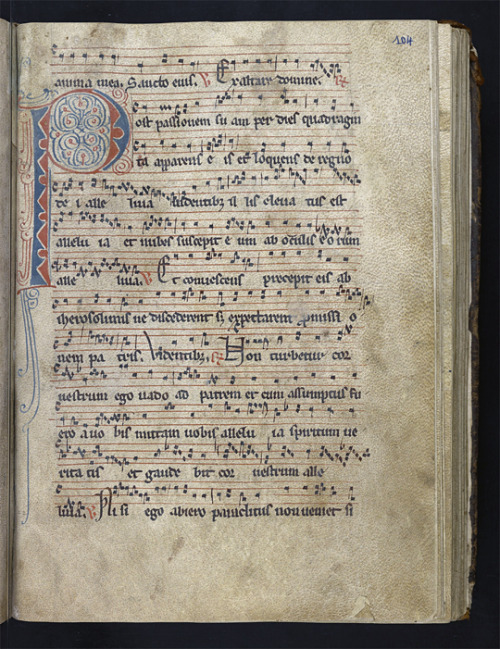 104
anima mea. Sancto eius. V Exaltare domine. R
Post passionem su am per dies quadragin
ta apparens e is et loquens de regno
de i alle luia videntibus il lis eleva tus est
allelu ia et nubes suscepit e um ab oculis eorum
alle luia. V Et convescens precepit eis ab
iherosolimis ne discederent s expectarent promissi o
nem pa tris. Videntibus. R Non turbetur cor
vestrum ego vado ad patrem et cum assumptus fu
ero a vo bis mittam vobis allelu ia spiritum ve
rita tis et gaude bit cor vestrum alle
luia. V Ni si ego abiero paraclitus non veniet si